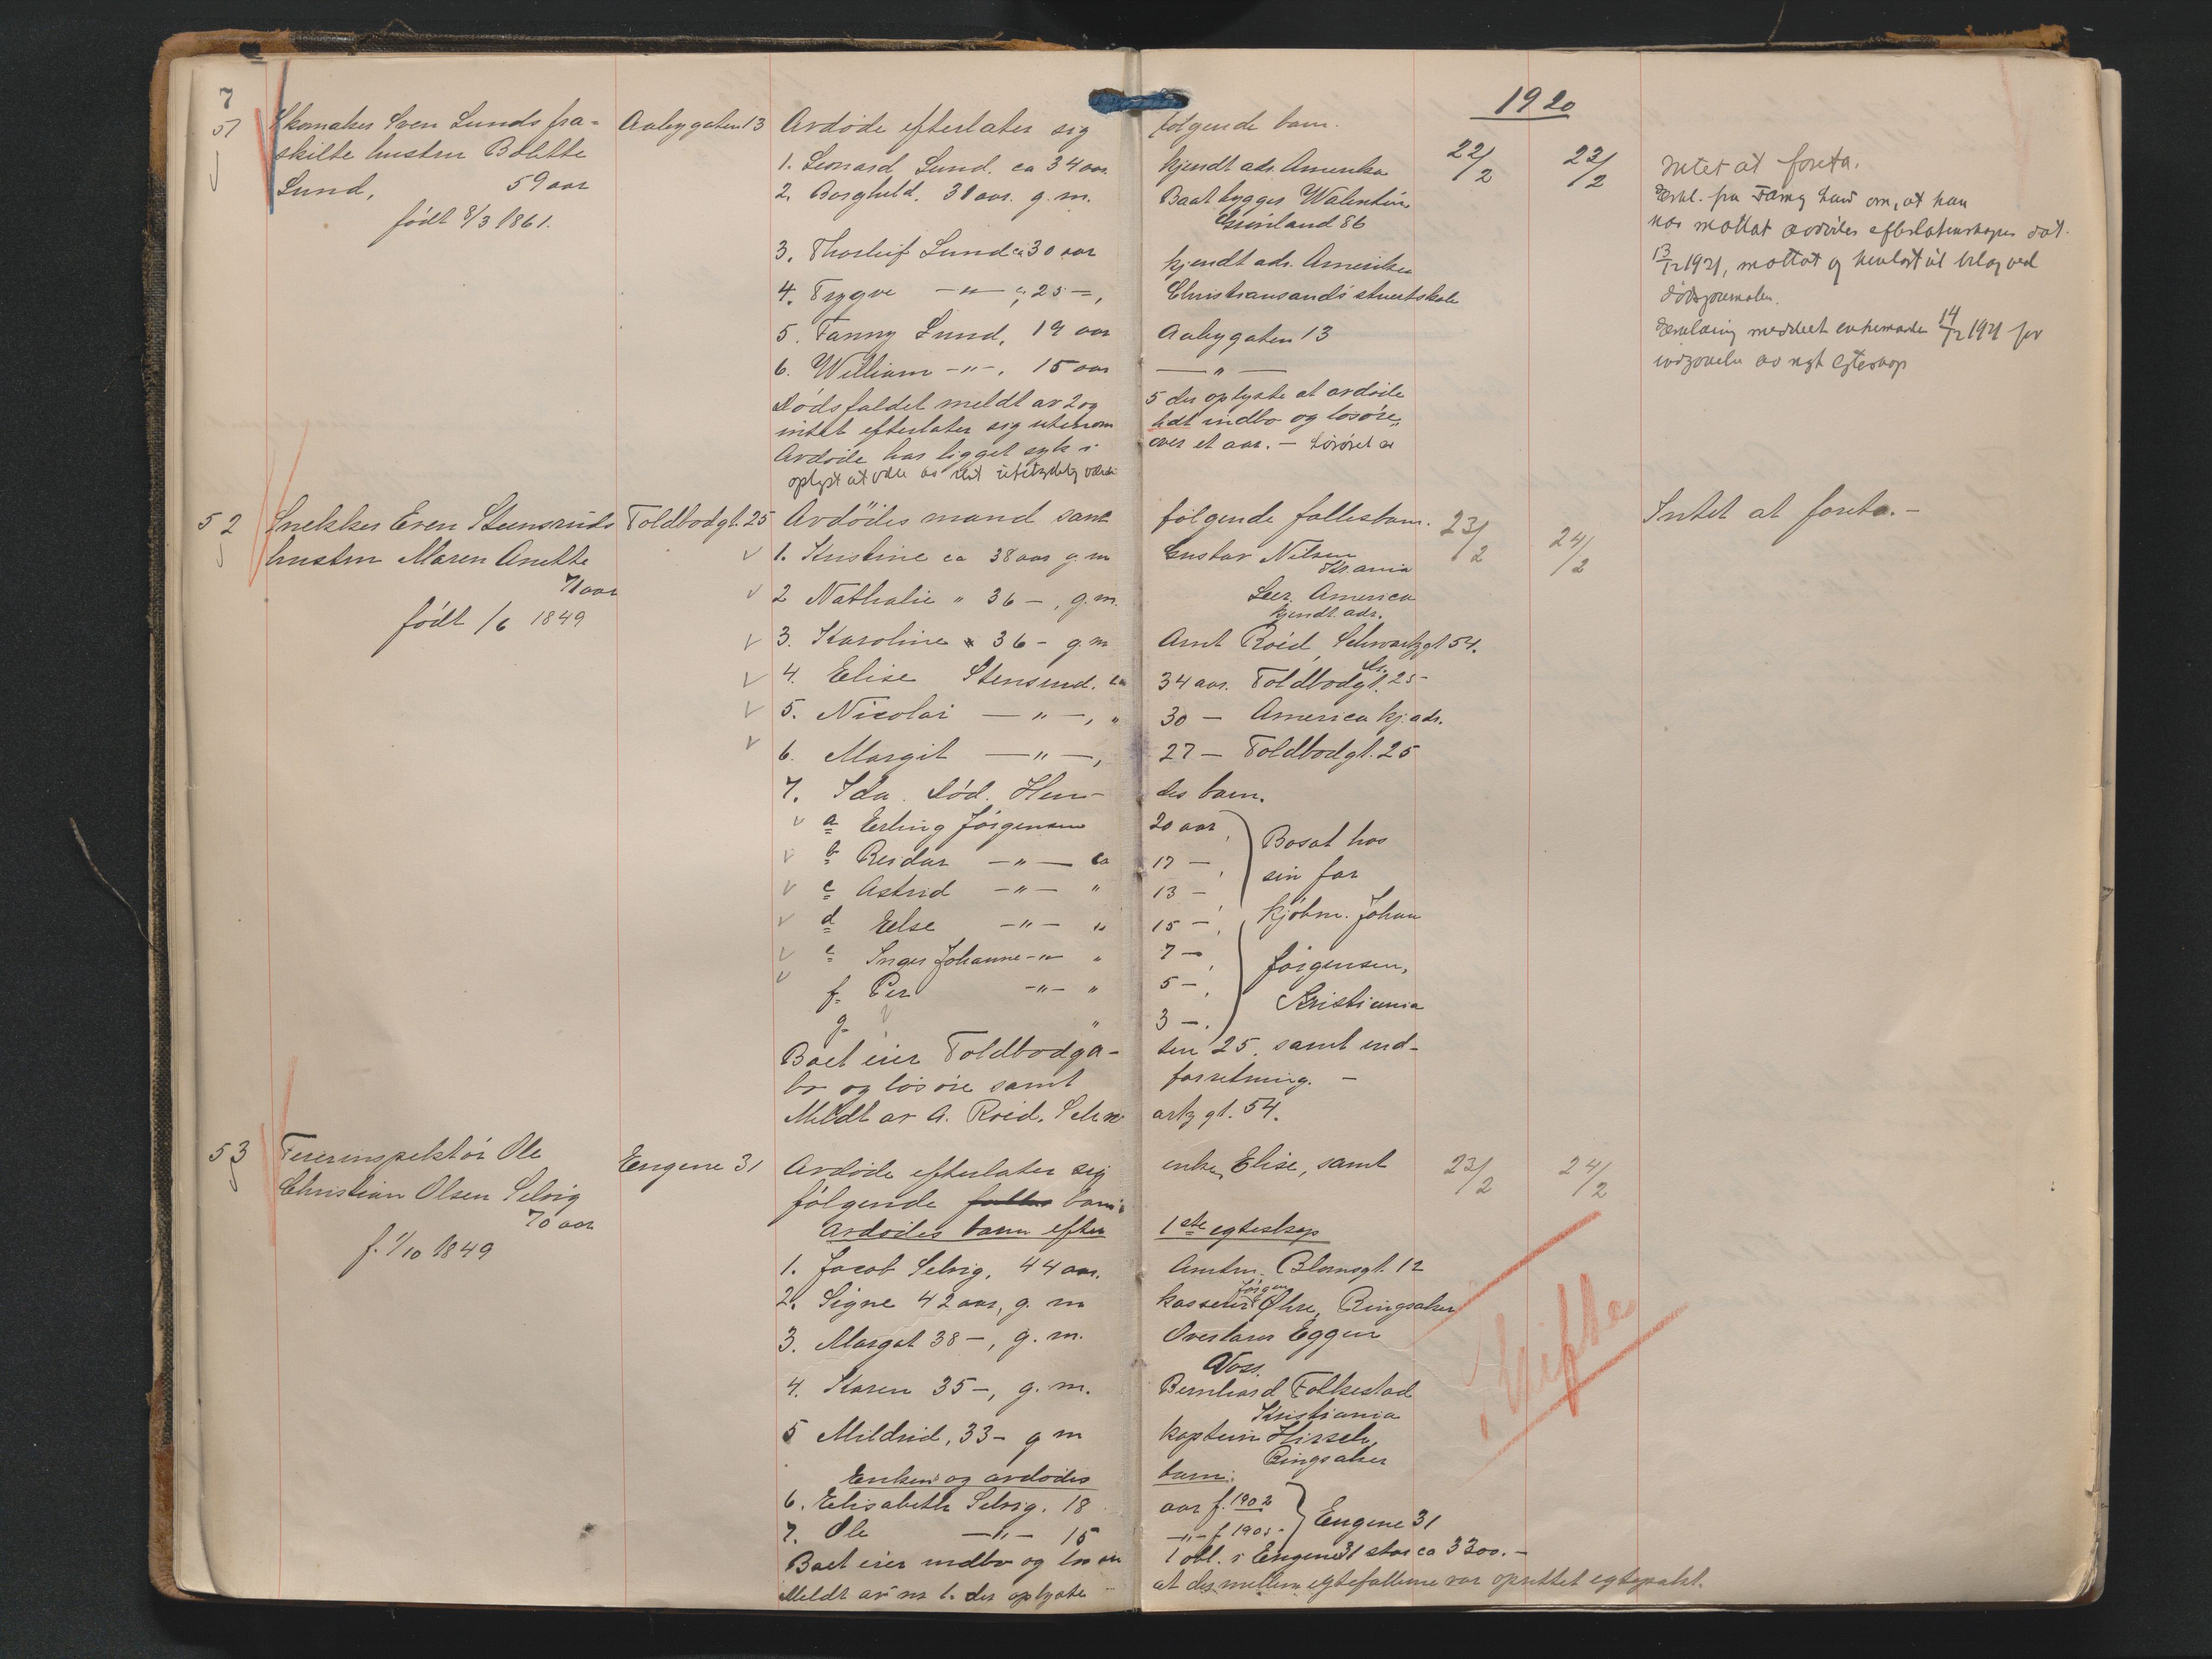 7
1920
51
Skomaker Sven Lunds fra-
skilte hustru Bolette
Lund, 59 aar
født 8/3 1861.
Aabygaten 13
Avdøde efterlater sig følgende barn.
1. Leonard Lund. ca 34 aar kjendt adr. Amerika
2. Borghild. 31 aar. g. m. Baatbygger Walentin
Grønland 86
3. Thorleif Lund ca 30 aar kjendt adr. Amerika
4. Trygve —"— " 25 —, Christiansands stuertskole
5. Fanny Lund, 19 aar Aabygaten 13
6. William —"—. 15 aar — " —
Dødsfaldet meldt av 2 og 5 der oplyste at avdøde
intet efterlater sig utenom litt indbo og losøre,
Avdøde har ligget syk i over et aar. — Løsøret er
oplyst at være av helt ubetydelig værdi
22/2
23/2
Intet at foreta.
Erkl. fra Fanny Lund om, at hun
har mottat avdødes efterlatenskaper dat.
13/12 1921, mottat og henlagt til bilag ved
dødsjournalen.
Erklæring meddelt enkemanden 14/12 1921 for
indgaaelse av nyt egteskap
52
Snekker Even Stensruds
hustru Maren Anette
71 aar
født /6 1849
Toldbodgt. 25
Avdødes mand samt følgende fællesbarn.
1. Kristine ca 38 aar g. m Gustav Nilsen
Kr.ania
2 Nathalie " 36 —, g. m. Leer. America
kjendt adr.
3. Karoline " 36 — g. m Arnt Roed, Schwartzgt 54.
4. Elise Stensrud. ca 34 aar. Toldbodgt. 25
5. Nicolai — " —, " 30 — America kj. adr.
6. Margit — " —, 27 — Toldbodgt. 25
7. Ida. Død. Hen- des barn.
a Erling Jørgensen 20 aar,
b Reidar — " — ca 17 —,
c Astrid — " — " 13 —
d Else — " — " 15 —,
e Inger Johanne — " — " 7 —,
f. Per — " — " 5 —,
g. " 3 —.
Bosat hos
sin far
kjøbm. Johan
Jørgensen,
Kristiania
Boet eier Toldbodga- ten 25. samt ind-
bo og løsøre samt forretning. —
Meldt av A. Roed. Schw artzgt. 54.
23/2
24/2
Intet at foreta. —
53
Feierinspektør Ole
Christian Olsen Selvig
70 aar
f. 1/10 1849
Engene 31
Avdøde efterlater sig enke, Elise, samt
følgende fælles barn:
Avdødes barn efter 1ste egteskap
1. Jacob Selvig, 44 aar. Amtm. Blomsgt. 12
2. Signe 42 aar, g. m kasserer Jørgen Øhre, Ringsaker
3. Margot 38 —, g. m. Overlærer Eggen
Voss.
4. Karen 35 —, g. m. Bernhard Folkestad
Kristiania
5 Mildrid, 33 — g m kaptein Hirsch,
Ringsaker
Enkens og avdødes barn:
6. Elisabeth Selvig. 18 aar f. 1902
7. Ole — " — 15 — " — f. 1905.
Engene 31
Boet eier indbo og løsøre 1 obl. i Engene 31 stor ca 3300. —
Meldt av nr 1. der oplyste at der mellem egtefællerne var oprettet egtepakt.
23/2
24/2
Skifte